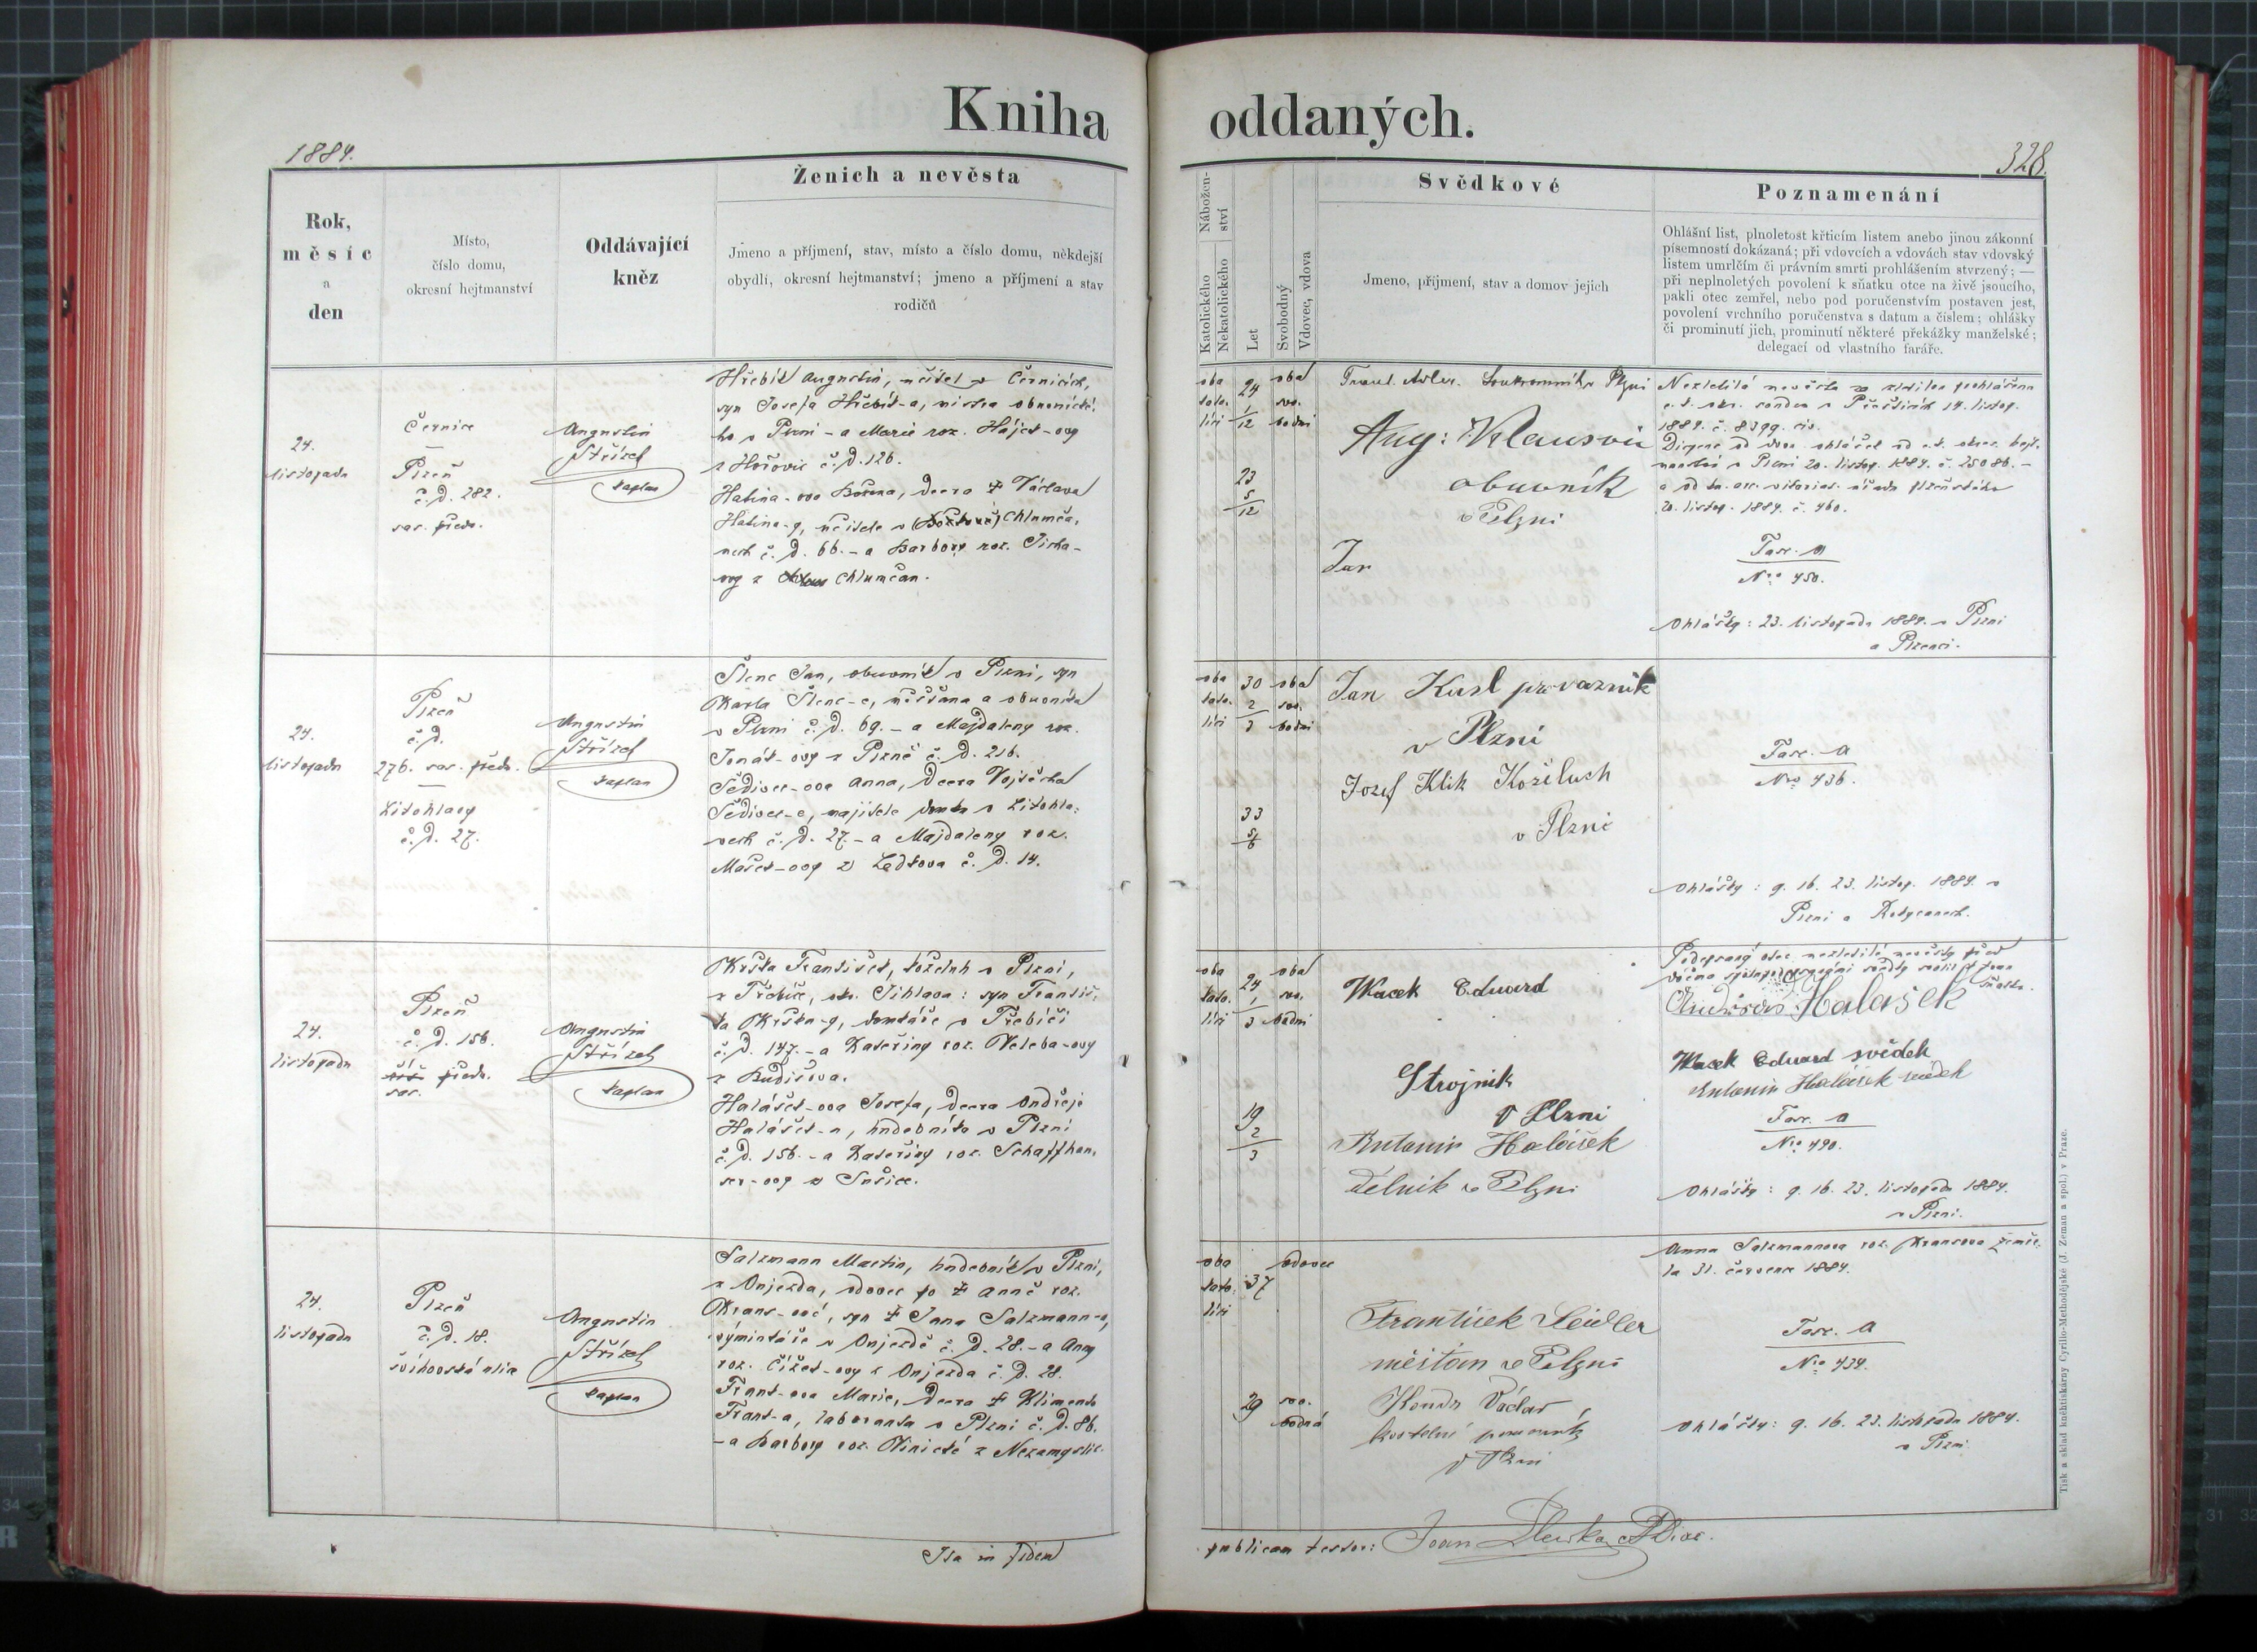 Kniha oddaných.
1884.
328.
Rok,
měsíc
a
den
Místo,
číslo domu,
okresní hejtmanství
Oddávající
kněz
Ženich a nevěsta
Jmeno a příjmení, stav, místo a číslo domu, někdejší
obydlí, okresní hejtmanství; jmeno a příjmení a stav
rodičů
Nábožen-
ství
Katolického
Nekatolického
Let
Svobodný
Vdovec, vdova
Svědkové
Jmeno, příjmení, stav a domov jejich
Poznamenání
Ohlášní list, plnoletost křticím listem anebo jinou zákonní
písemností dokázaná; při vdovcích a vdovách stav vdovský
listem umrlčím či právním smrti prohlášením stvrzený; —
při neplnoletých povolení k sňatku otce na živě jsoucího,
pakli otec zemřel, nebo pod poručenstvím postaven jest,
povolení vrchního poručenstva s datum a číslem; ohlášky
či prominutí jich, prominutí některé překážky manželské;
delegací od vlastního faráře.
24.
listopadu
Černice
—
Plzeň
č. d. 282.
sas. předm.
Augustin
Střízek
kaplan
Hřebík Augustin, učitel v Černicích,
syn Josefa Hřebík-a, mistra obuvnické-
ho v Plzni - a Marie roz. Hájek-ovy
z Hořovic č. d. 126.
Habina-ova Božena, dcera † Václava
Habina-y, učitele v Chlumča-
nech č. d. 66. - a Barbory roz. Ticha-
ovy z Chlumčan.
oba
kato-
líci
24
1/12
oba
svo-
bodní
23
5/12
Frant. Adler. Soukromník v Plzni
Aug: Klausová
obuvník
v Plzni
Jan
Nezletilá nevěsta za zletilou prohlášena
c. k. okr. soudem v Přešticích 14. listop.
1884. č. 8399. civ.
Dispens od dvou ohlášek od c. k. okres. hejt-
manství v Plzni 20. listop. 1884. č. 25086. -
a od bis. arc. vikariat. úřadu plzeňského
20. listop. 1884. č. 460.
Fasc. A
Nro 450.
Ohlášky: 23. listopadu 1884. v Plzni
a Plzenci.
24.
listopadu
Plzeň
č. d.
276. sas. předm.
—
Litohlavy
č. d. 27.
Augustin
Střízek
kaplan
Šlenc Jan, obuvník v Plzni, syn
Karla Šlenc-e, měšťana a obuvníka
v Plzni č. d. 69. - a Majdaleny roz.
Jonáš-ovy z Plzně č. d. 216.
Šedivec-ova Anna, dcera Vojtěcha
Šedivec-e, majitele domku v Litohla-
vech č. d. 27. - a Majdaleny roz.
Mařek-ovy z Ledkova č. d. 14.
oba
kato-
líci
30
2/3
oba
svo-
bodní
33
5/6
Jan Kusl provazník
v Plzni
Josef Klik Koželuch
v Plzni
Fasc. A
Nro 436.
Ohlášky: 9. 16. 23. listop. 1884. v
Plzni a Rokycanech.
24.
listopadu
Plzeň
č. d. 156.
předm.
sas.
Augustin
Střízek
kaplan
Krška František, koželuh v Plzni,
z Třebíče, okr. Jihlava: syn Františ-
ka Krška-y, domkáře v Třebíči
č. d. 147. - a Kateřiny roz. Veleba-ovy
z Budišova.
Halášek-ova Josefa, dcera Ondřeje
Halášek-a, hudebníka v Plzni
č. d. 156. - a Kateřiny roz. Schaffhau-
ser-ovy z Sušice.
oba
kato-
líci
24
1/3
oba
svo-
bodní
19
2/3
Wacek Eduard
Strojník
v Plzni
Antonín Halášek
dělník v Plzni
Podepsaný otec nezletilé nevěsty před
dvěma spolupodepsanými svědky svolil k jeho
sňatku.
Halašek
Wacek Eduard svědek
Antonín Halášek svědek
Fasc. A
Nro 490.
Ohlášky: 9. 16. 23. listopadu 1884.
v Plzni.
24.
listopadu
Plzeň
č. d. 18.
švihovská ulice
Augustin
Střízek
kaplan
Salzmann Martin, hudebník v Plzni,
z Onjezda, vdovec po † Anně roz.
Kraus-ové, syn † Jana Salzmann-a,
výminkáře v Onjezdě č. d. 28. - a Anny
roz. Čížek-ovy z Onjezda č. d. 28.
Frant-ova Marie, dcera † Klimenta
Frant-a, laboranta v Plzni č. d. 86.
- a Barbory roz. Vinické z Nezamyslic.
oba
kato-
líci
37
vdovec
29
svo-
bodná
František Seidler
měšťan v Plzni
Honda Václav
kostelní pomocník
v Plzni
Anna Salzmannova roz. Krausova zemře-
la 31. července 1884.
Fasc. A
Nro 434.
Ohlášky: 9. 16. 23. listopadu 1884.
v Plzni.
Ita in fidem
publicam testor:
Tisk a sklad knihtiskárny Cyrillo-Methodějské (J. Zeman a spol.) v Praze.